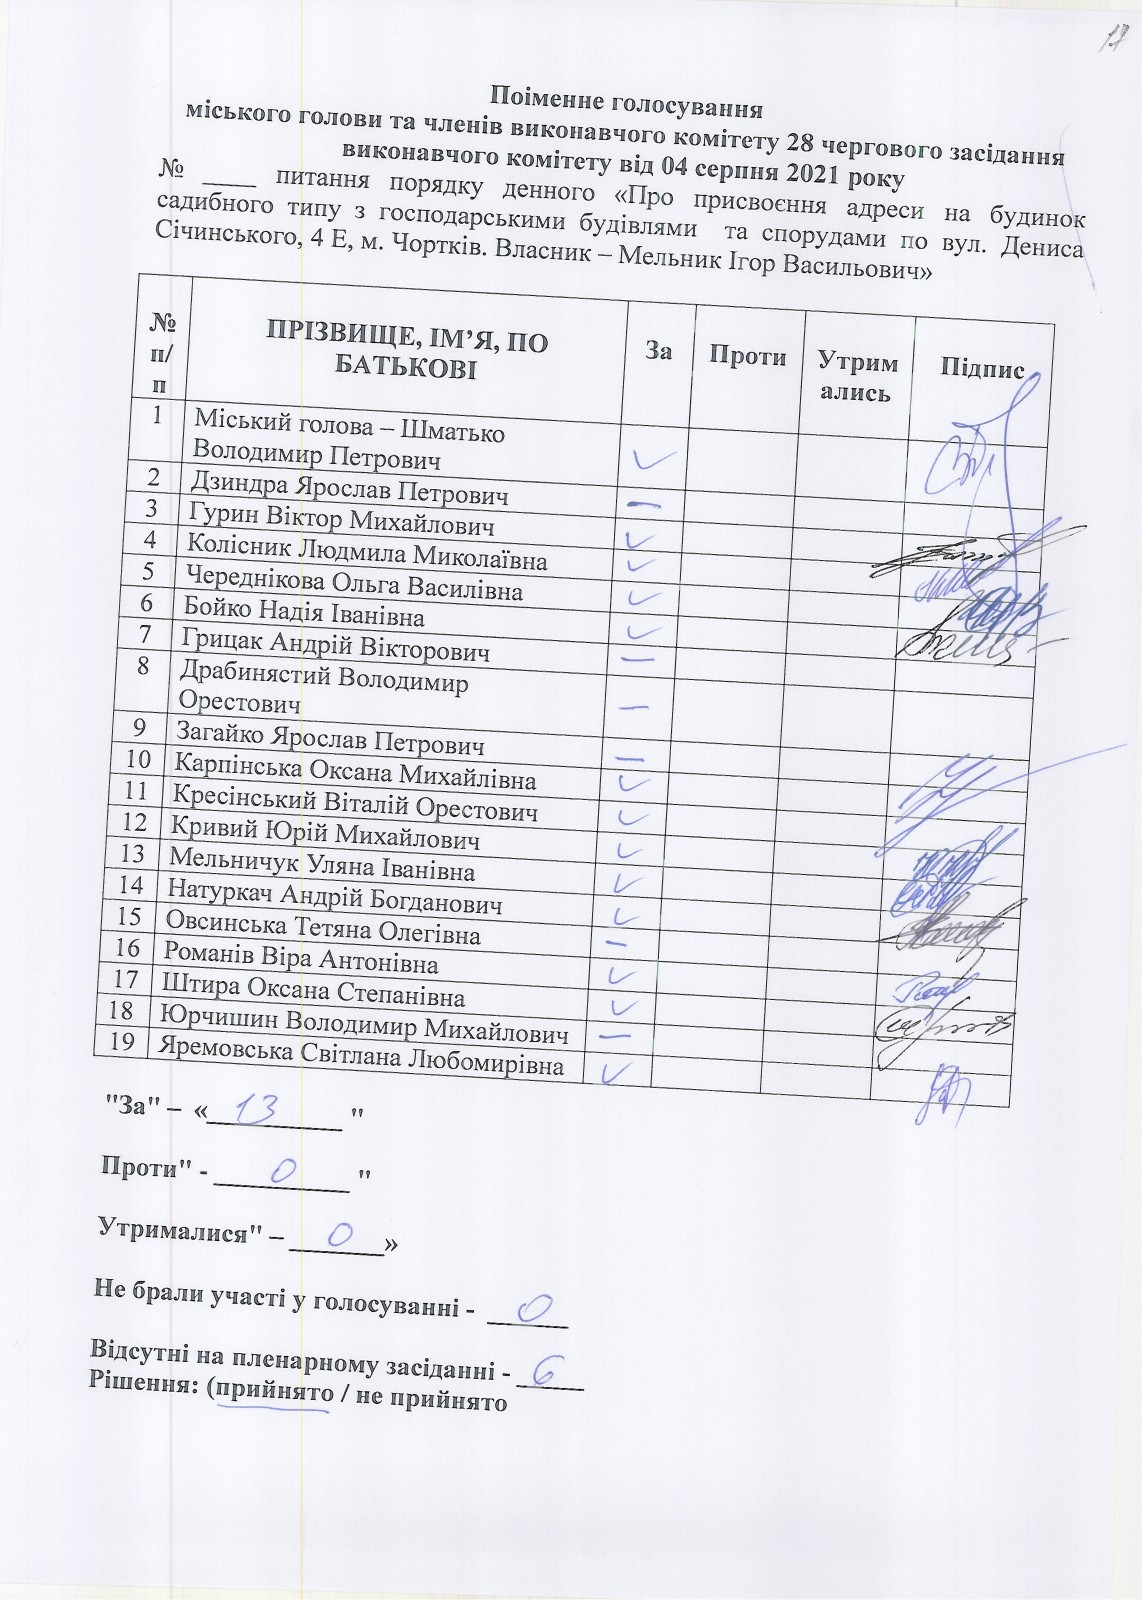 17
Поіменне голосування
міського голови та членів виконавчого комітету 28 чергового засідання
виконавчого комітету від 04 серпня 2021 року
№ ____ питання порядку денного «Про присвоєння адреси на будинок
садибного типу з господарськими будівлями та спорудами по вул. Дениса
Січинського, 4 Е, м. Чортків. Власник – Мельник Ігор Васильович»
№ п/п ПРІЗВИЩЕ, ІМ’Я, ПО БАТЬКОВІ За Проти Утримались Підпис
1 Міський голова – Шматько
Володимир Петрович ✓
2 Дзиндра Ярослав Петрович –
3 Гурин Віктор Михайлович ✓
4 Колісник Людмила Миколаївна ✓
5 Череднікова Ольга Василівна ✓
6 Бойко Надія Іванівна ✓
7 Грицак Андрій Вікторович –
8 Драбинястий Володимир
Орестович –
9 Загайко Ярослав Петрович –
10 Карпінська Оксана Михайлівна ✓
11 Кресінський Віталій Орестович ✓
12 Кривий Юрій Михайлович ✓
13 Мельничук Уляна Іванівна ✓
14 Натуркач Андрій Богданович ✓
15 Овсинська Тетяна Олегівна –
16 Романів Віра Антонівна ✓
17 Штира Оксана Степанівна ✓
18 Юрчишин Володимир Михайлович –
19 Яремовська Світлана Любомирівна ✓
"За" – « 13 "
Проти" - 0 "
Утрималися" – 0 »
Не брали участі у голосуванні - 0
Відсутні на пленарному засіданні - 6
Рішення: (прийнято / не прийнято